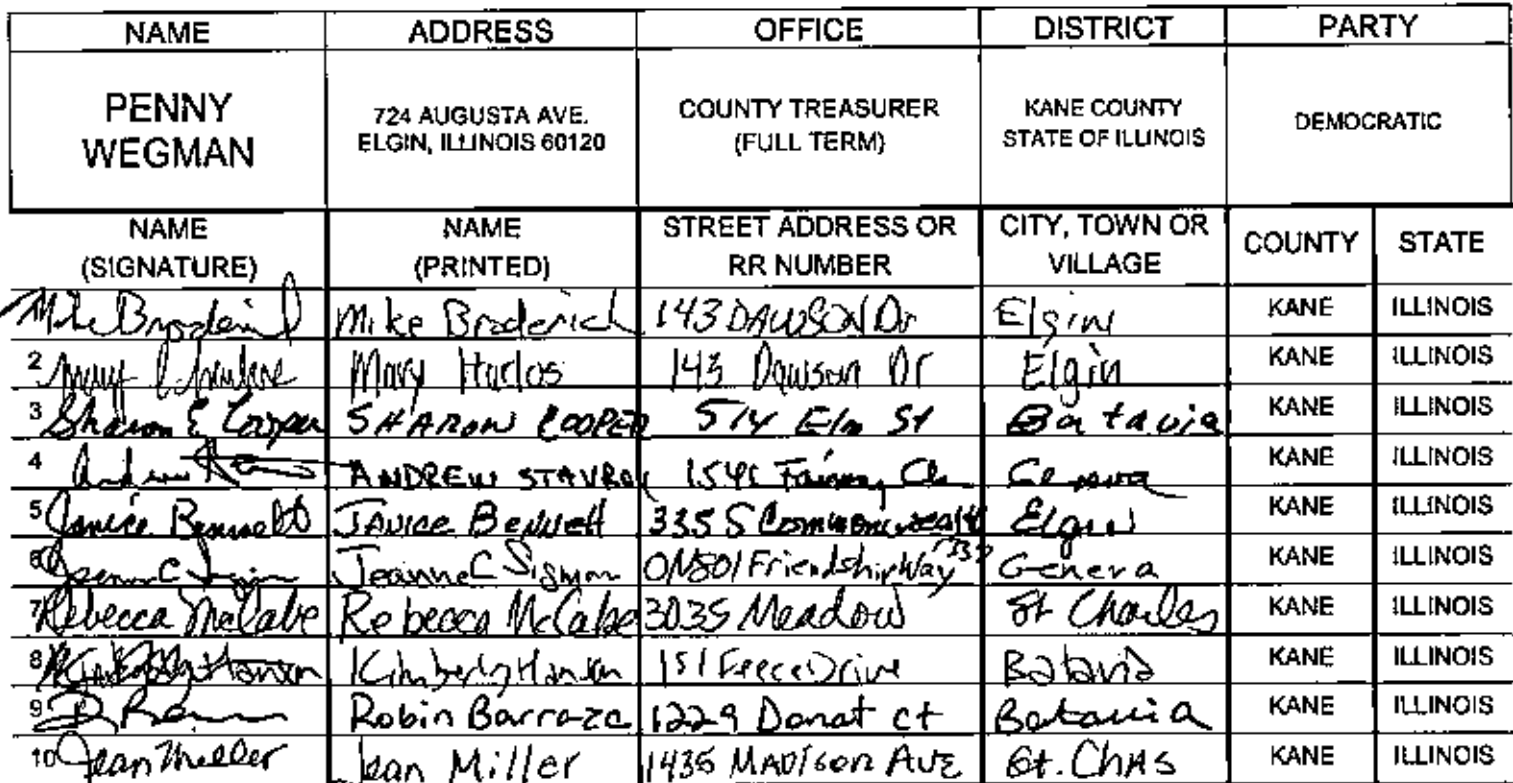 NAME ADDRESS OFFICE DISTRICT PARTY
PENNY WEGMAN 724 AUGUSTA AVE. ELGIN, ILLINOIS 60120 COUNTY TREASURER (FULL TERM) KANE COUNTY STATE OF ILLINOIS DEMOCRATIC
NAME (SIGNATURE) NAME (PRINTED) STREET ADDRESS OR RR NUMBER CITY, TOWN OR VILLAGE COUNTY STATE
Mike Broderick Mike Broderick 143 DAWSON Dr Elgin KANE ILLINOIS
2 Mary Harlos 143 Dawson Dr Elgin KANE ILLINOIS
3 Sharon E Cooper SHARON COOPER 514 Elm St Batavia KANE ILLINOIS
4 Andrew ANDREW 1541 Geneva KANE ILLINOIS
5 Janice Bennett JANICE Bennett 335 S Commonwealth Elgin KANE ILLINOIS
6 Jeanne C Sigmon 0N801 Friendship Way Geneva KANE ILLINOIS
7 Rebecca McCabe Rebecca McCabe 3035 Meadow St Charles KANE ILLINOIS
8 Kimberly Hansen Kimberly Hansen 151 Feece Drive Batavia KANE ILLINOIS
9 Robin Barraza 1229 Donat ct Batavia KANE ILLINOIS
10 Jean Miller Jean Miller 1435 MADISON AVE St. CHAS KANE ILLINOIS